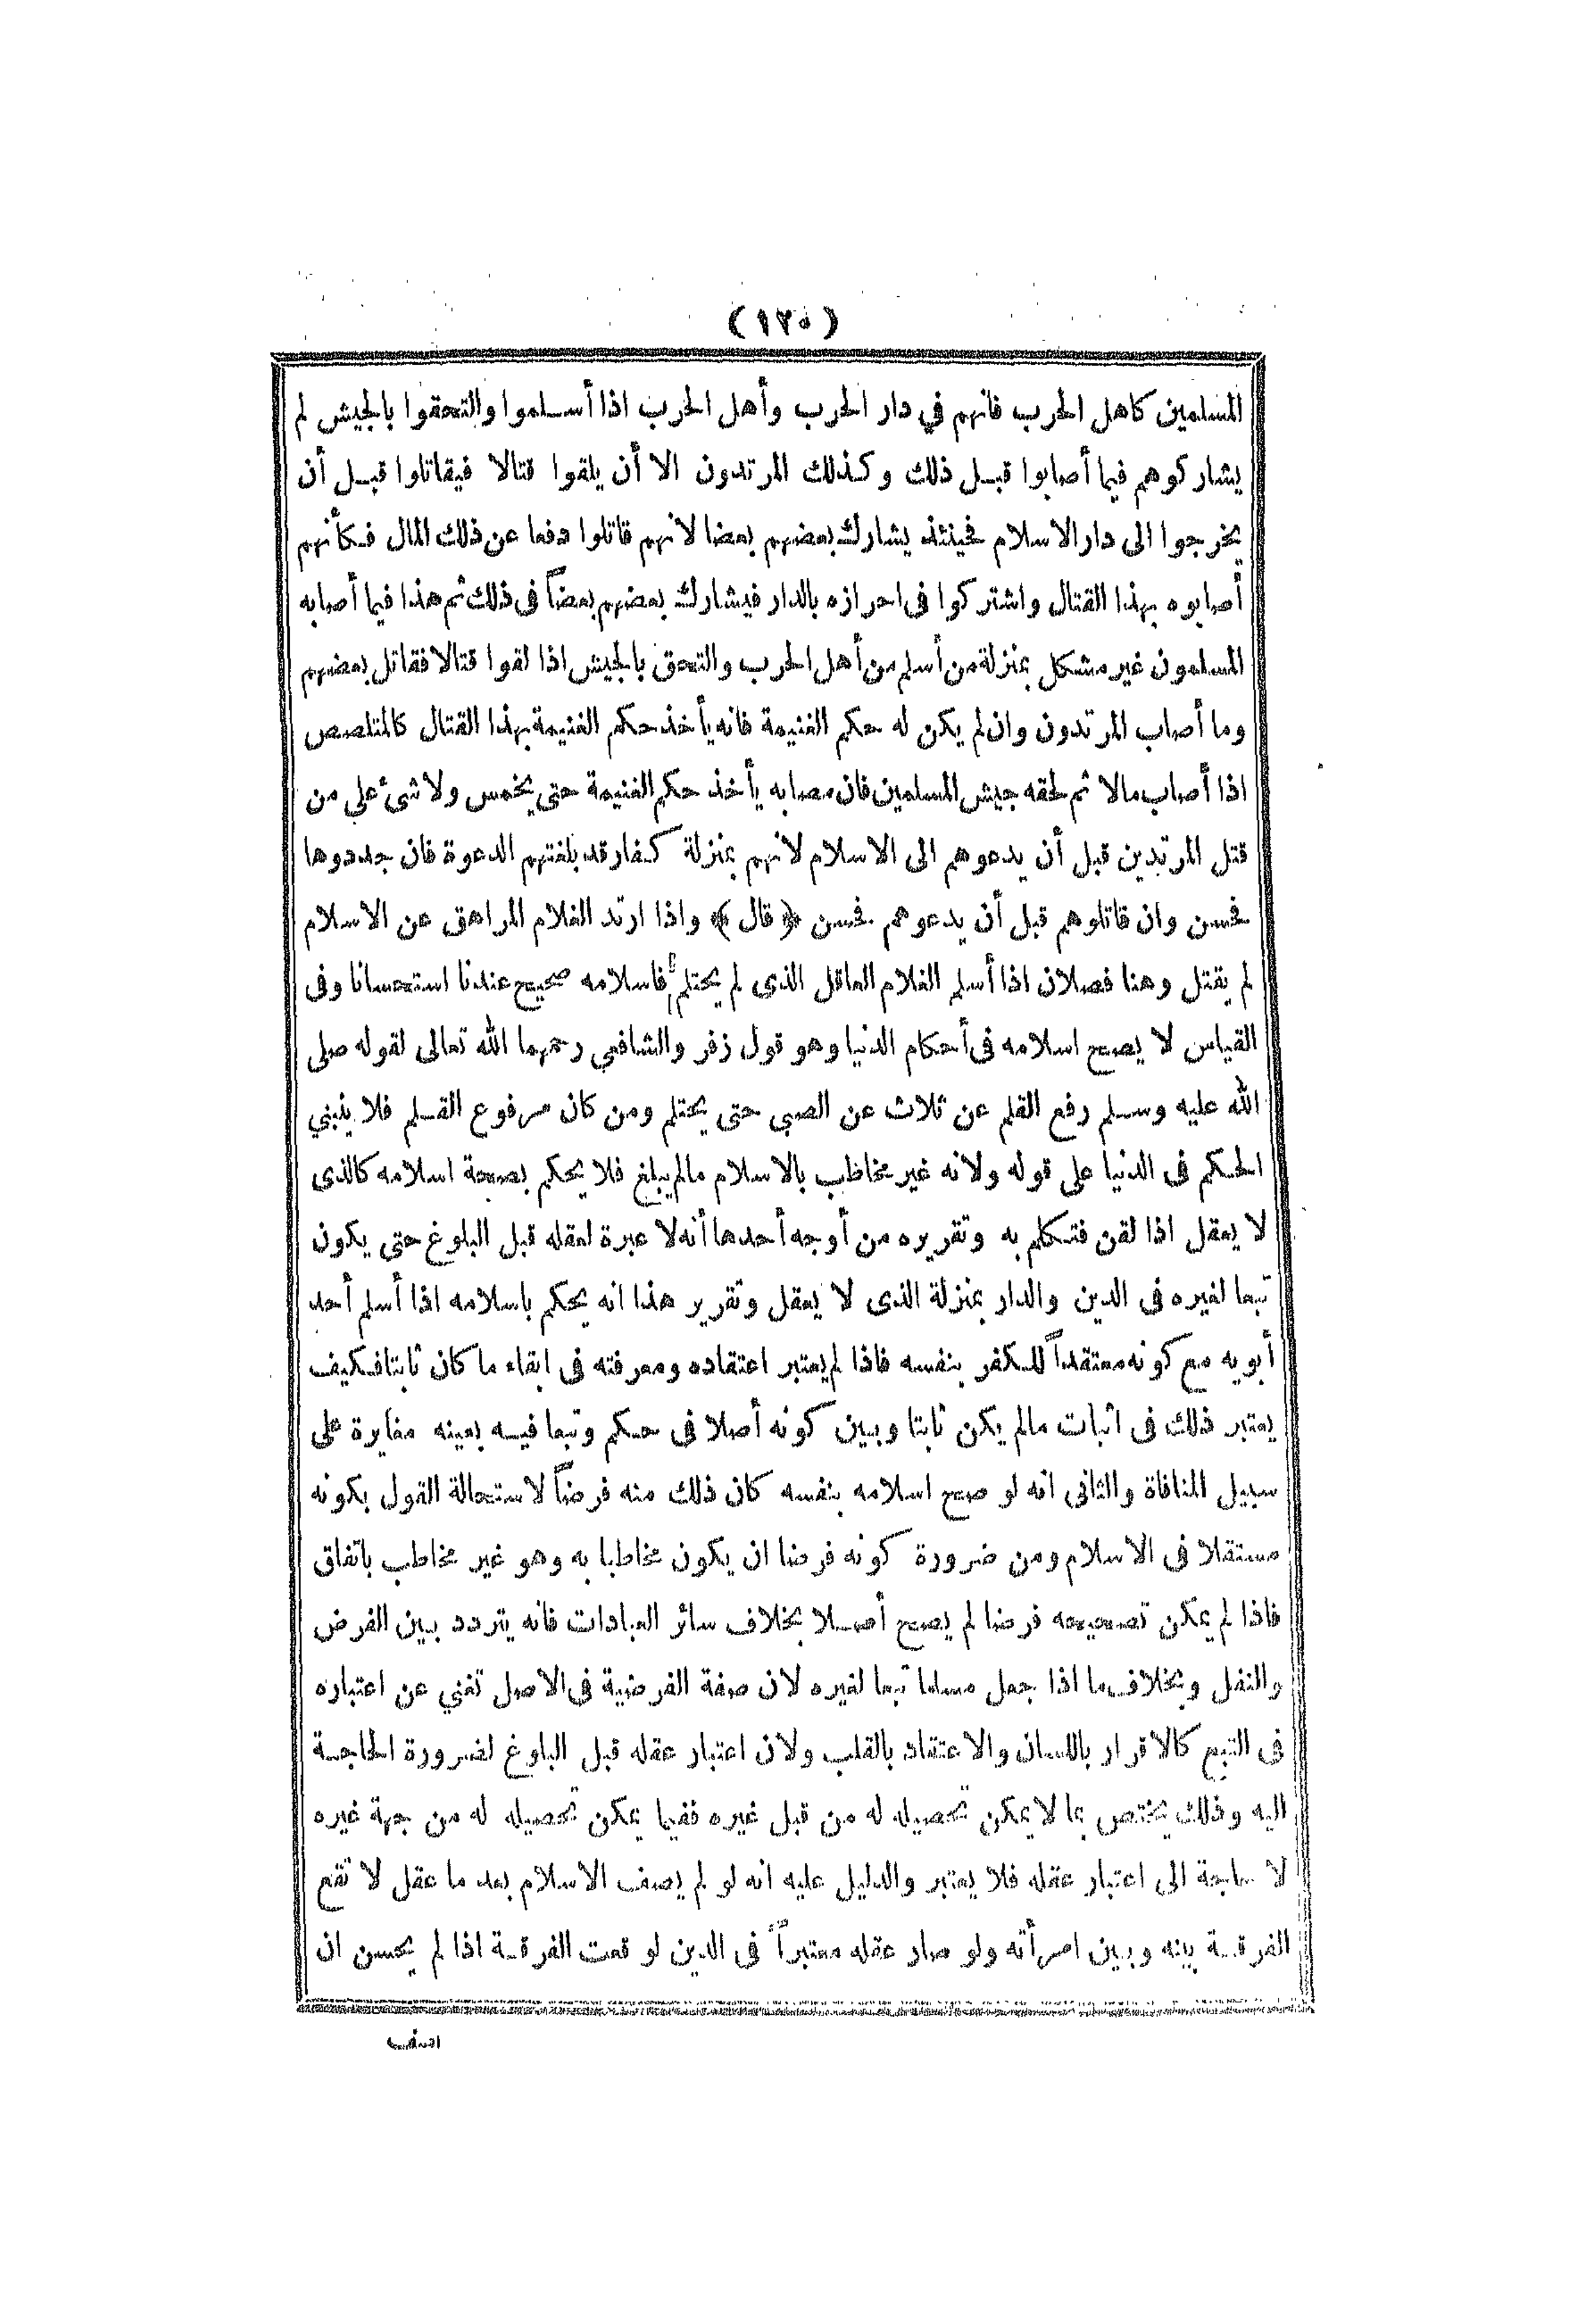 (١٢٠)
المسلمين كاهل الحرب فانهم في دار الحرب وأهل الحرب اذا أسلموا والتحقوا بالجيش لم
يشاركوهم فيما أصابوا قبل ذلك وكذلك المرتدون الا أن يلقوا قتالا فيقاتلوا قبل أن
يخرجوا الى دار الاسلام فحينئذ يشارك بعضهم بعضا لانهم قاتلوا دفعا عن ذلك المال فكأنهم
أصابوه بهذا القتال واشتركوا فى احرازه بالدار فيشارك بعضهم بعضاً فى ذلك ثم هذا فيما أصابه
المسلمون غير مشكل بمنزلة من أسلم من أهل الحرب والتحق بالجيش اذا لقوا قتالا فقاتل بعضهم
وما أصاب المرتدون وان لم يكن له حكم الغنيمة فانه يأخذ حكم الغنيمة بهذا القتال كالمتلصص
اذا أصاب مالا ثم لحقه جيش المسلمين فان مصابه يأخذ حكم الغنيمة حتى يخمس ولا شئ على من
قتل المرتدين قبل أن يدعوهم الى الاسلام لانهم بمنزلة كفار قد بلغتهم الدعوة فان جددوها
فحسن وان قاتلوهم قبل أن يدعوهم فحسن ﴿ قال ﴾ واذا ارتد الغلام المراهق عن الاسلام
لم يقتل وهنا فصلان اذا أسلم الغلام العاقل الذى لم يحتلم فاسلامه صحيح عندنا استحسانا وفى
القياس لا يصح اسلامه فى أحكام الدنيا وهو قول زفر والشافعي رحمهما الله تعالى لقوله صلى
الله عليه وسلم رفع القلم عن ثلاث عن الصبى حتى يحتلم ومن كان مرفوع القلم فلا ينبني
الحكم فى الدنيا على قوله ولانه غير مخاطب بالاسلام مالم يبلغ فلا يحكم بصحة اسلامه كالذى
لا يعقل اذا لقن فتكلم به وتقريره من أوجه أحدها أنه لا عبرة لعقله قبل البلوغ حتى يكون
تبعا لغيره فى الدين والدار بمنزلة الذى لا يعقل وتقرير هذا انه يحكم باسلامه اذا أسلم أحد
أبويه مع كونه معتقداً للكفر بنفسه فاذا لم يعتبر اعتقاده ومعرفته فى ابقاء ما كان ثابتا فكيف
يعتبر ذلك فى اثبات مالم يكن ثابتا وبين كونه أصلا فى حكم وتبعا فيه بعينه مغايرة على
سبيل المنافاة والثانى انه لو صح اسلامه بنفسه كان ذلك منه فرضاً لاستحالة القول بكونه
مستقلا فى الاسلام ومن ضرورة كونه فرضا ان يكون مخاطبا به وهو غير مخاطب باتفاق
فاذا لم يمكن تصحيحه فرضا لم يصح أصلا بخلاف سائر العبادات فانه يتردد بين الفرض
والنفل وبخلاف ما اذا جعل مسلما تبعا لغيره لان صفة الفرضية فى الاصل تغني عن اعتباره
فى التبع كالاقرار باللسان والاعتقاد بالقلب ولان اعتبار عقله قبل البلوغ لضرورة الحاجة
اليه وذلك يختص بما لا يمكن تحصيله له من قبل غيره ففيما يمكن تحصيله له من جهة غيره
لا حاجة الى اعتبار عقله فلا يعتبر والدليل عليه انه لو لم يصف الاسلام بعد ما عقل لا تقع
الفرقة بينه وبين امرأته ولو صار عقله معتبراً فى الدين لوقعت الفرقة اذا لم يحسن ان